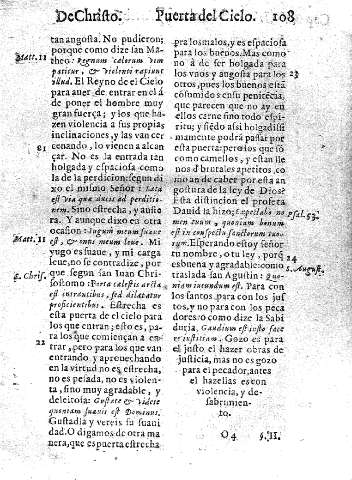 De Christo. Puerta del Cielo. 108
tan angosta. No pudieron;
porque como dize san Ma-
theo: Regnum cælorum vim
patitur, & violenti rapiunt
illud. El Reyno de el Cielo
para auer de entrar en el à
de poner el hombre muy
gran fuerça; y los que ha-
zen violencia a sus propias
inclinaciones, y las van cer
cenando, lo vienen a alcan
çar. No es la entrada tan
holgada y espaciosa como
la de la perdicion; segun di
xo el mismo señor: Lata
est via quæ ducis ad perditio-
nem. Sino estrecha, y auste
ra. Y aunque dixo en otra
ocasion: Iugum meum suaue
est, & onus meum leue. Mi
yugo es suaue, y mi carga
leue, no se contradize, por
que segun san Iuan Chris-
sostomo: Porta cælestis arcta
est intrantibus, sed dilatatur
proficientibus. Estrecha es
esta puerta de el cielo para
los que entran; esto es, pa-
ra los que comiençan a en
trar, pero para los que van
entrando, y aprouechando
en la virtud no es estrecha,
no es pesada, no es violen-
ta, sino muy agradable, y
deleitosa: Gustate & videte
quoniam suauis est Dominus.
Gustadla y vereis su suaui
dad. O digamos de otra ma
nera, que es puerta estrecha
Matt. 11
21
Matt. 11
S. Chris.
22
pra los malos, y es espaciosa
para los buenos. Mas como
no à de ser holgada para
los vnos y angosta para los
otros, pues los buenos està
cõsumidos en su penitẽcia,
que parecen que no ay en
ellos carne sino todo espi-
ritu; y siẽdo assi holgadissi
mamente podrà passar por
esta puerta: pero los que sõ
como camellos, y estan lle
nos d brutales apetitos, co
mo an de caber por esta an
gostura de la ley de Dios?
Esta distincion el profeta
Dauid la hizo: Expectabo no
men tuum, quoniam bonum
est in conspectu sanctorum tuo-
rum. Esperando estoy señor
tu nombre, o tu ley, porq̃
es buena y agradable: como
traslada san Agustin: Quo-
niam iucundum est. Para con
los santos, para con los jus
tos, y no para con los peca
dores: o como dize la Sabi
duria, Gaudium est iusto face
re iustitiam. Gozo es para
el justo el hazer obras de
justicia, mas no es gozo
para el pecador, antes
el hazellas es con
violencia, y de-
sabrimien-
to.
23
Psal. 51.
24
S. August.
O 4 §. II.